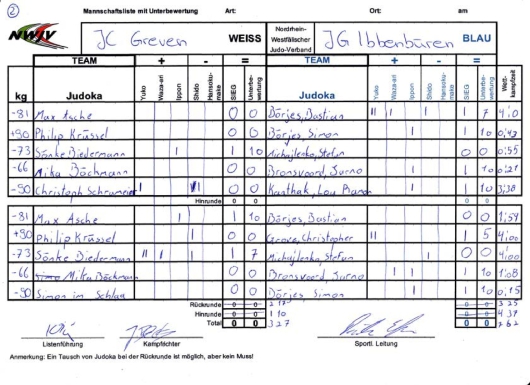 2 Mannschaftsliste mit Unterbewertung Art: Ort: am
NWJV JC Greven WEISS Nordrhein-Westfälischer Judo-Verband JG Ibbenbüren BLAU
TEAM + - = TEAM + - =
kg Judoka Yuko Waza-ari Ippon Shido Hansoku-make SIEG Unterbewertung Judoka Yuko Waza-ari Ippon Shido Hansoku-make SIEG Unterbewertung Wettkampfzeit
-81 Max Asche 0 0 Dörjes, Bastian || | 1 7 4:0
+90 Philip Krüssel 0 0 Dörjes, Simon | 1 10 0:43
-73 Sönke Biedermann | 1 10 Michajlenko, Stefan 0 0 0:55
-66 Mika Böckmann 0 0 Bronsvoord, Jarno | 1 10 0:21
-90 Christoph Schrameier | || 0 0 Kanthak, Lou | 1 10 3:38
Hinrunde
-81 Max Asche | 1 10 Dörjes, Bastian 0 0 1:59
+90 Philip Krüssel | 0 0 Grove, Christopher || 1 5 4:00
-73 Sönke Biedermann || | 1 7 Michajlenko, Stefan | 0 0 4:00
-66 Mika Böckmann 0 0 Bronsvoord, Jarno | | 1 10 1:08
-90 Simon im Schlaa 0 0 Dörjes, Simon | 1 10 0:15
Rückrunde 0 0 2 17 0 0 3 25
Hinrunde 0 0 1 10 0 0 4 37
Total 0 0 3 27 0 0 7 62
Listenführer Kampfrichter Sportl. Leitung
Anmerkung: Ein Tausch von Judoka bei der Rückrunde ist möglich, aber kein Muss!